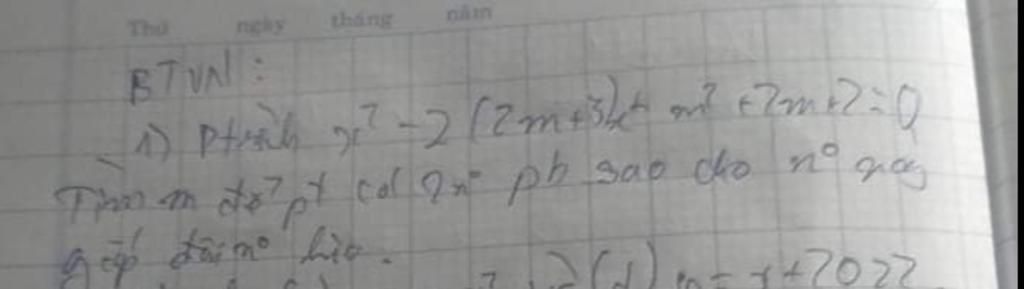 Thứ ngày tháng năm
BTVN:
1) Ptrình x² - 2(2m+3)x + m² + 2m + 2 = 0
Tìm m để pt có 2 n° pb sao cho n° này
gấp đôi n° kia.
(d) y = x + 2022